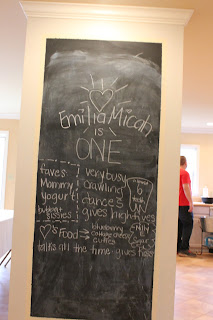 Emilia Micah
is
ONE
faves
Mommy
yogurt
button
sissies
very busy
crawling
dances
gives high fives
♡s Food →
blueberry
cottage cheese
cuties
talks all the time gives kisses